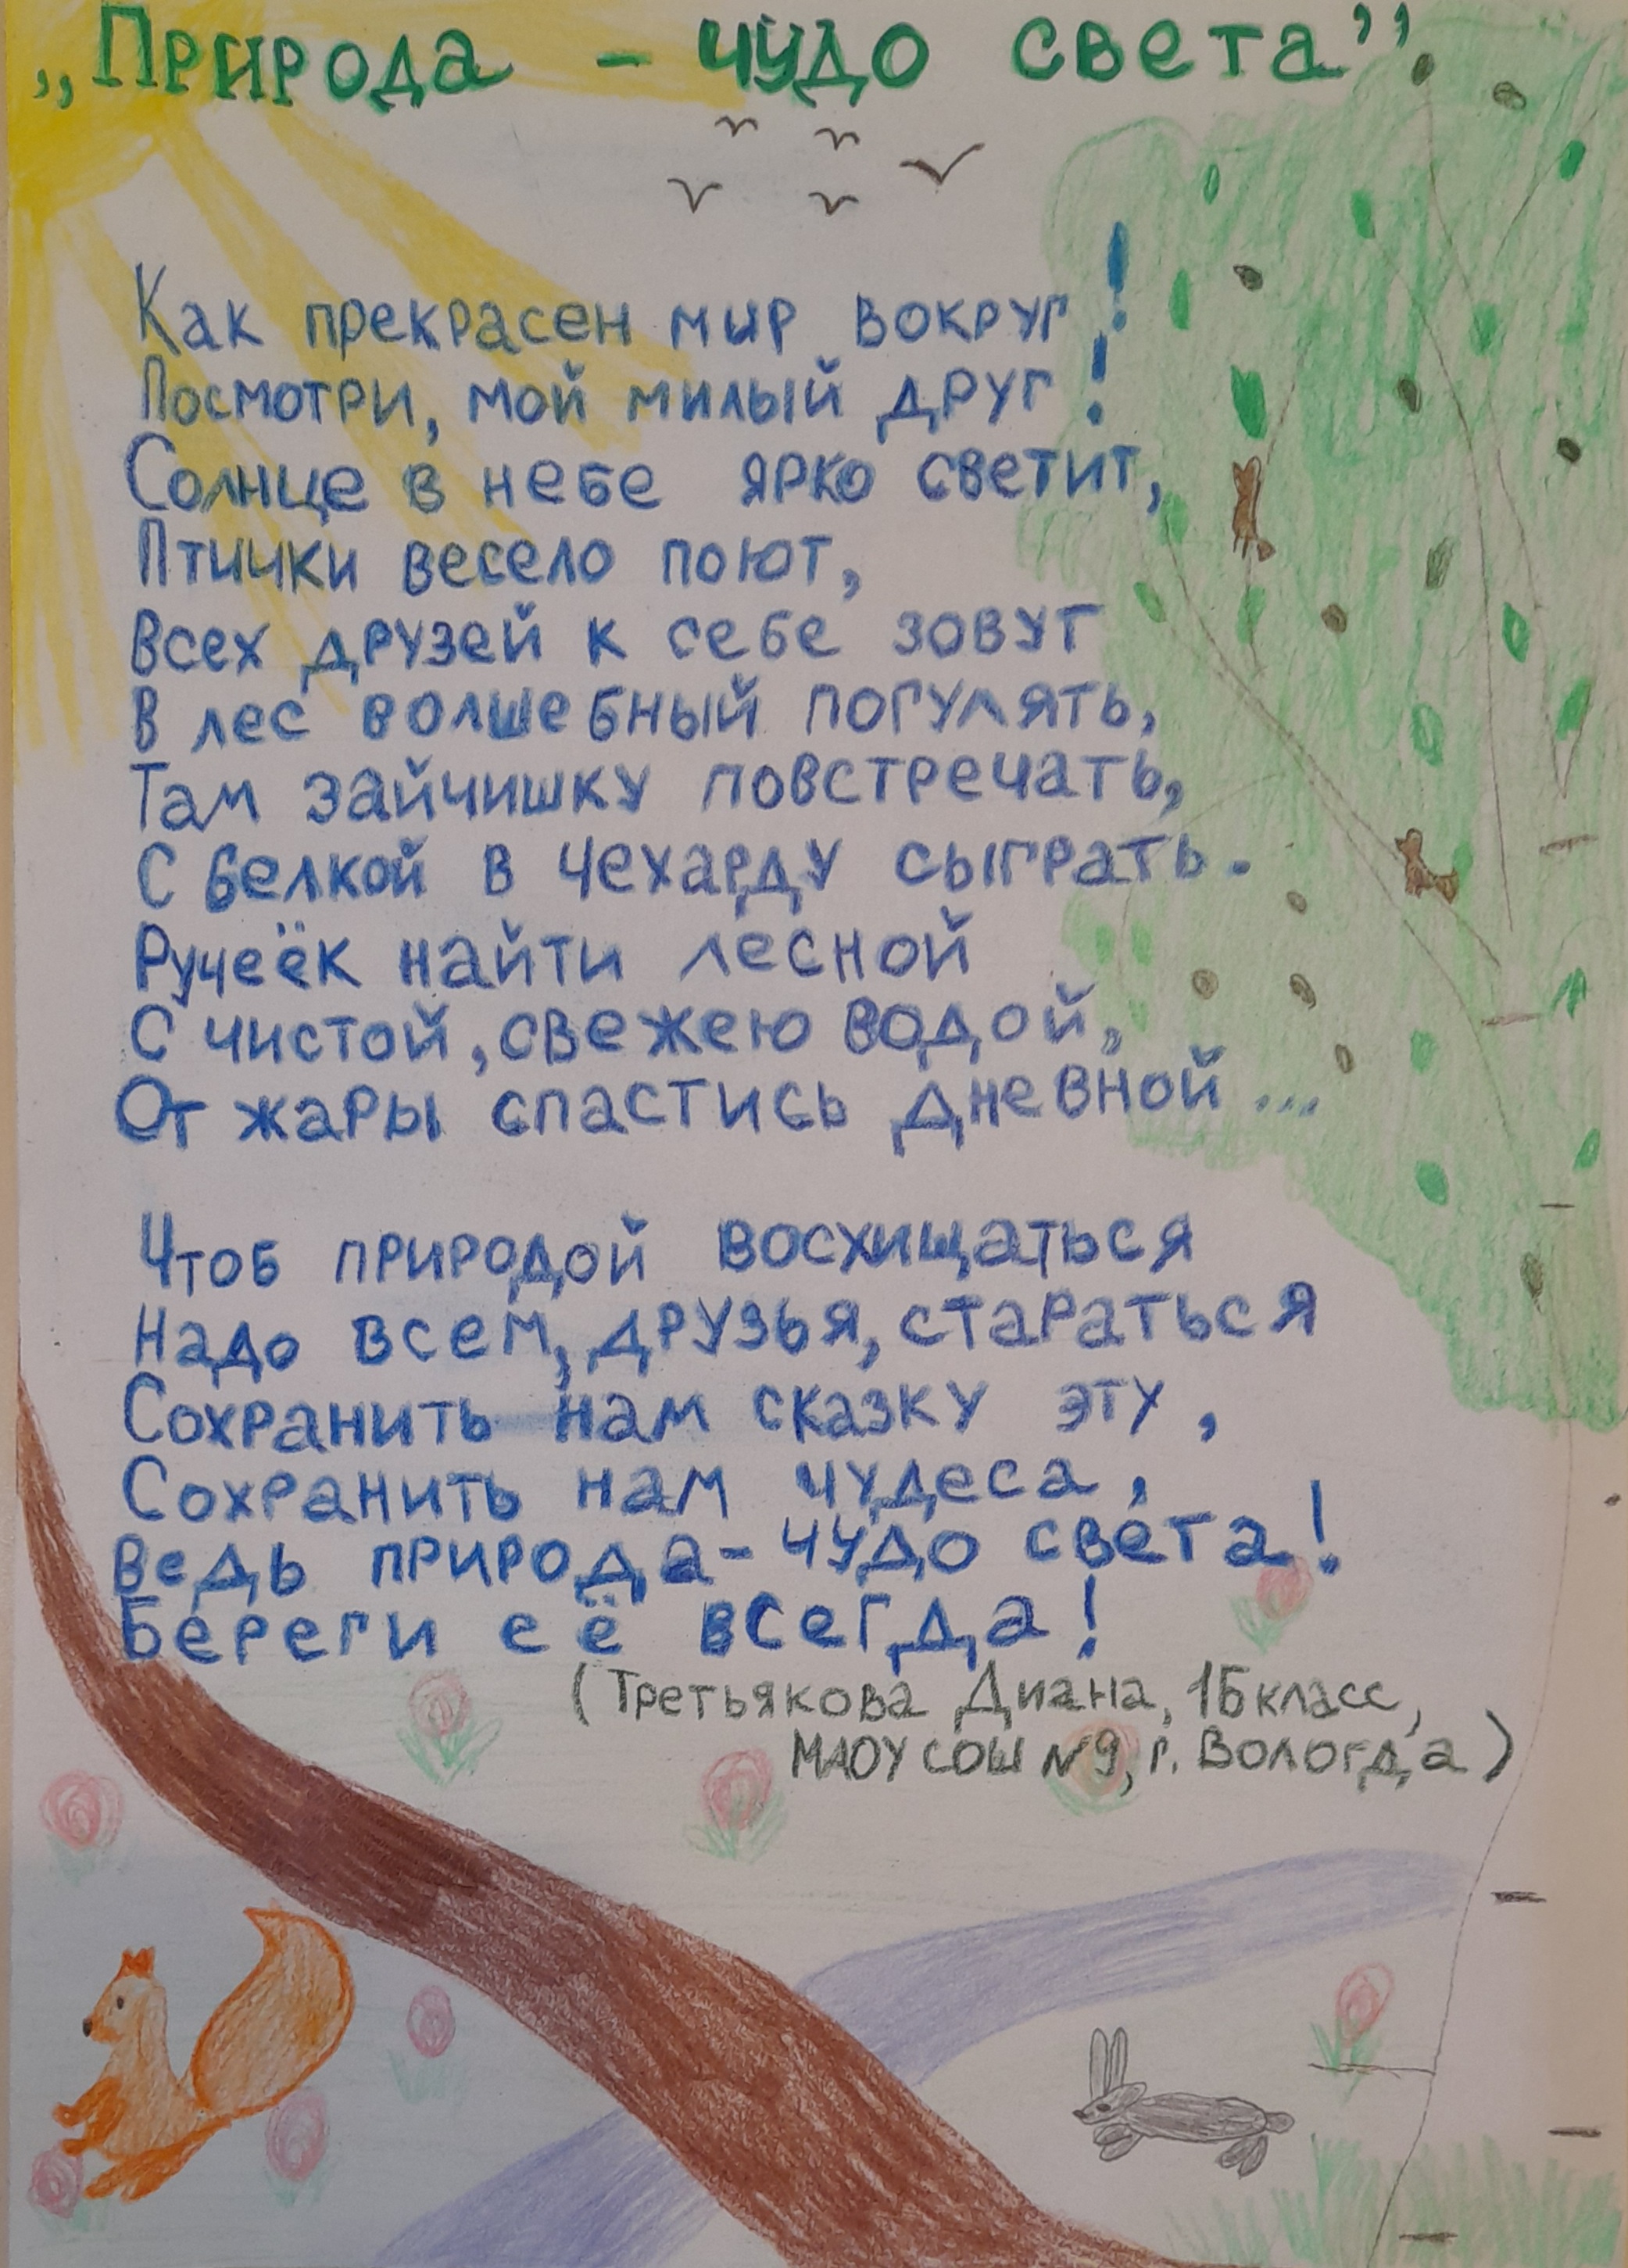 „Природа - чудо света”
Как прекрасен мир вокруг!
Посмотри, мой милый друг!
Солнце в небе ярко светит,
Птички весело поют,
Всех друзей к себе зовут
В лес волшебный погулять,
Там зайчишку повстречать,
С белкой в чехарду сыграть.
Ручеёк найти лесной
С чистой, свежею водой,
От жары спастись дневной...
Чтоб природой восхищаться
Надо всем, друзья, стараться
Сохранить нам сказку эту,
Сохранить нам чудеса,
Ведь природа - чудо света!
Береги её всегда!
(Третьякова Диана, 1Б класс,
МАОУ СОШ №9, г. Вологда)